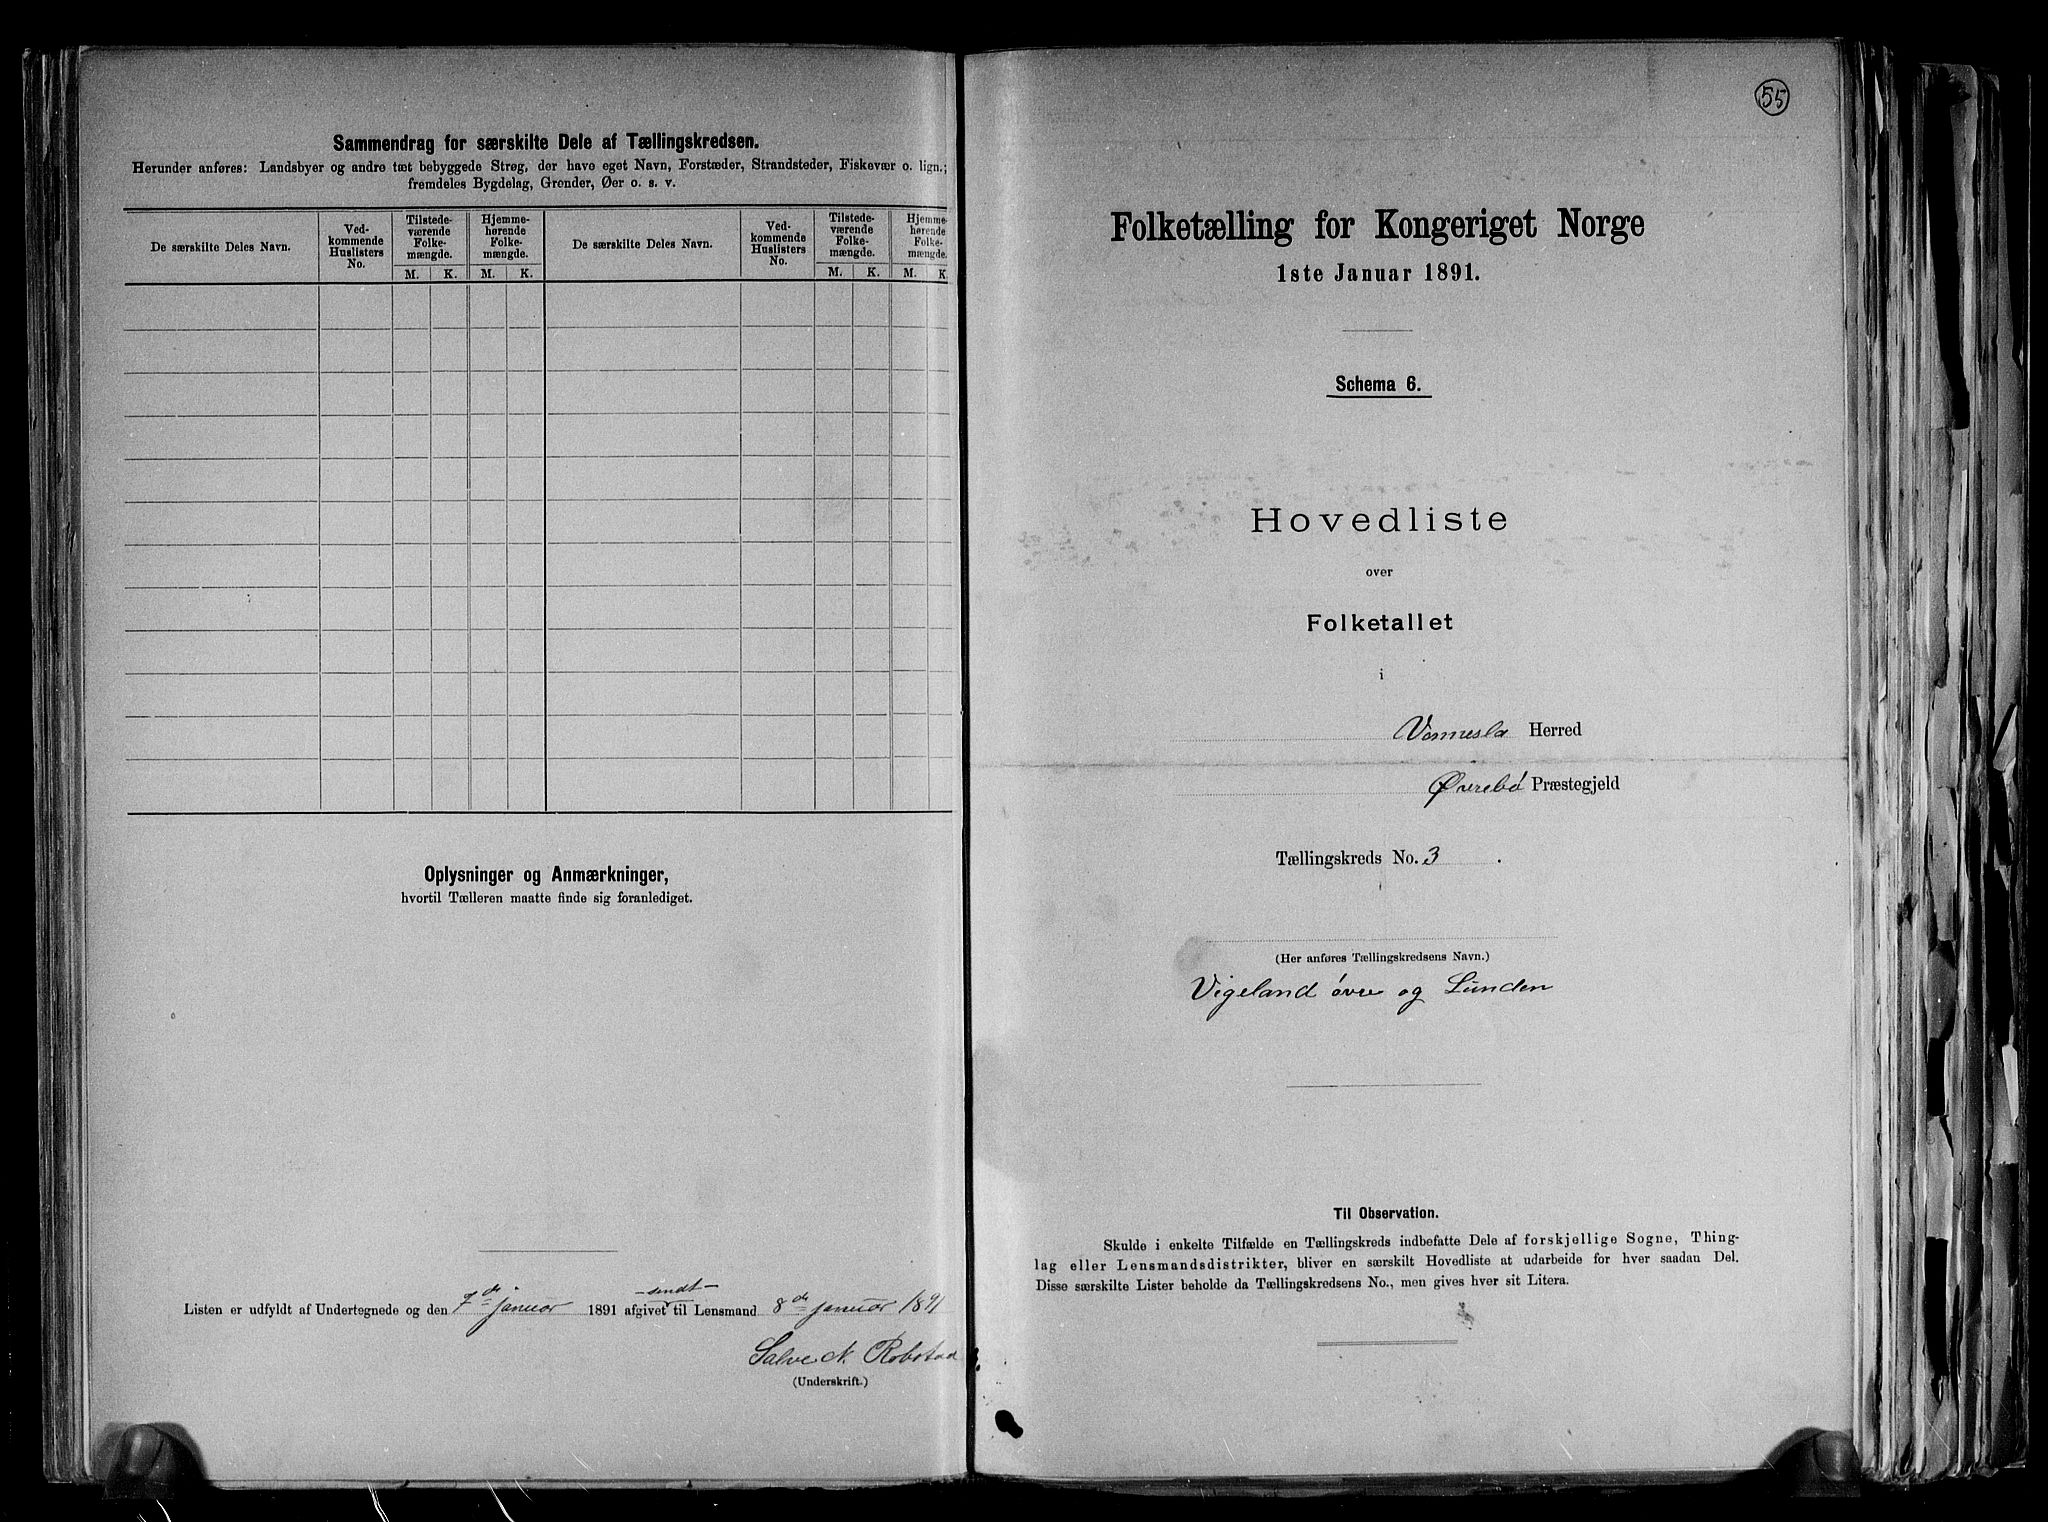 Sammendrag for særskilte Dele af Tællingskredsen.
Herunder anføres: Landsbyer og andre tæt bebyggede Strøg, der have eget Navn, Forstæder, Strandsteder, Fiskevær o. lign.;
fremdeles Bygdelag, Grender, Øer o. s. v.
De særskilte Deles Navn.
Ved-
kommende
Huslisters
No.
Tilstede-
værende
Folke-
mængde.
Hjemme-
hørende
Folke-
mængde.
De særskilte Deles Navn.
Ved-
kommende
Huslisters
No.
Tilstede-
værende
Folke-
mængde.
Hjemme-
hørende
Folke-
mængde.
M. K. M. K. M. K. M. K.
Oplysninger og Anmærkninger,
hvortil Tælleren maatte finde sig foranlediget.
sendt
Listen er udfyldt af Undertegnede og den 7de januar 1891 afgivet til Lensmand 8de januar 1891
Salve N. Robstad
(Underskrift.)
55
Folketælling for Kongeriget Norge
1ste Januar 1891.
Schema 6.
Hovedliste
over
Folketallet
i
Vennesla Herred
Øvrebø Præstegjeld
Tællingskreds No. 3.
(Her anføres Tællingskredsens Navn.)
Vigeland øvre og Lunden
Til Observation.
Skulde i enkelte Tilfælde en Tællingskreds indbefatte Dele af forskjellige Sogne, Thing-
lag eller Lensmandsdistrikter, bliver en særskilt Hovedliste at udarbeide for hver saadan Del.
Disse særskilte Lister beholde da Tællingskredsens No., men gives hver sit Litera.